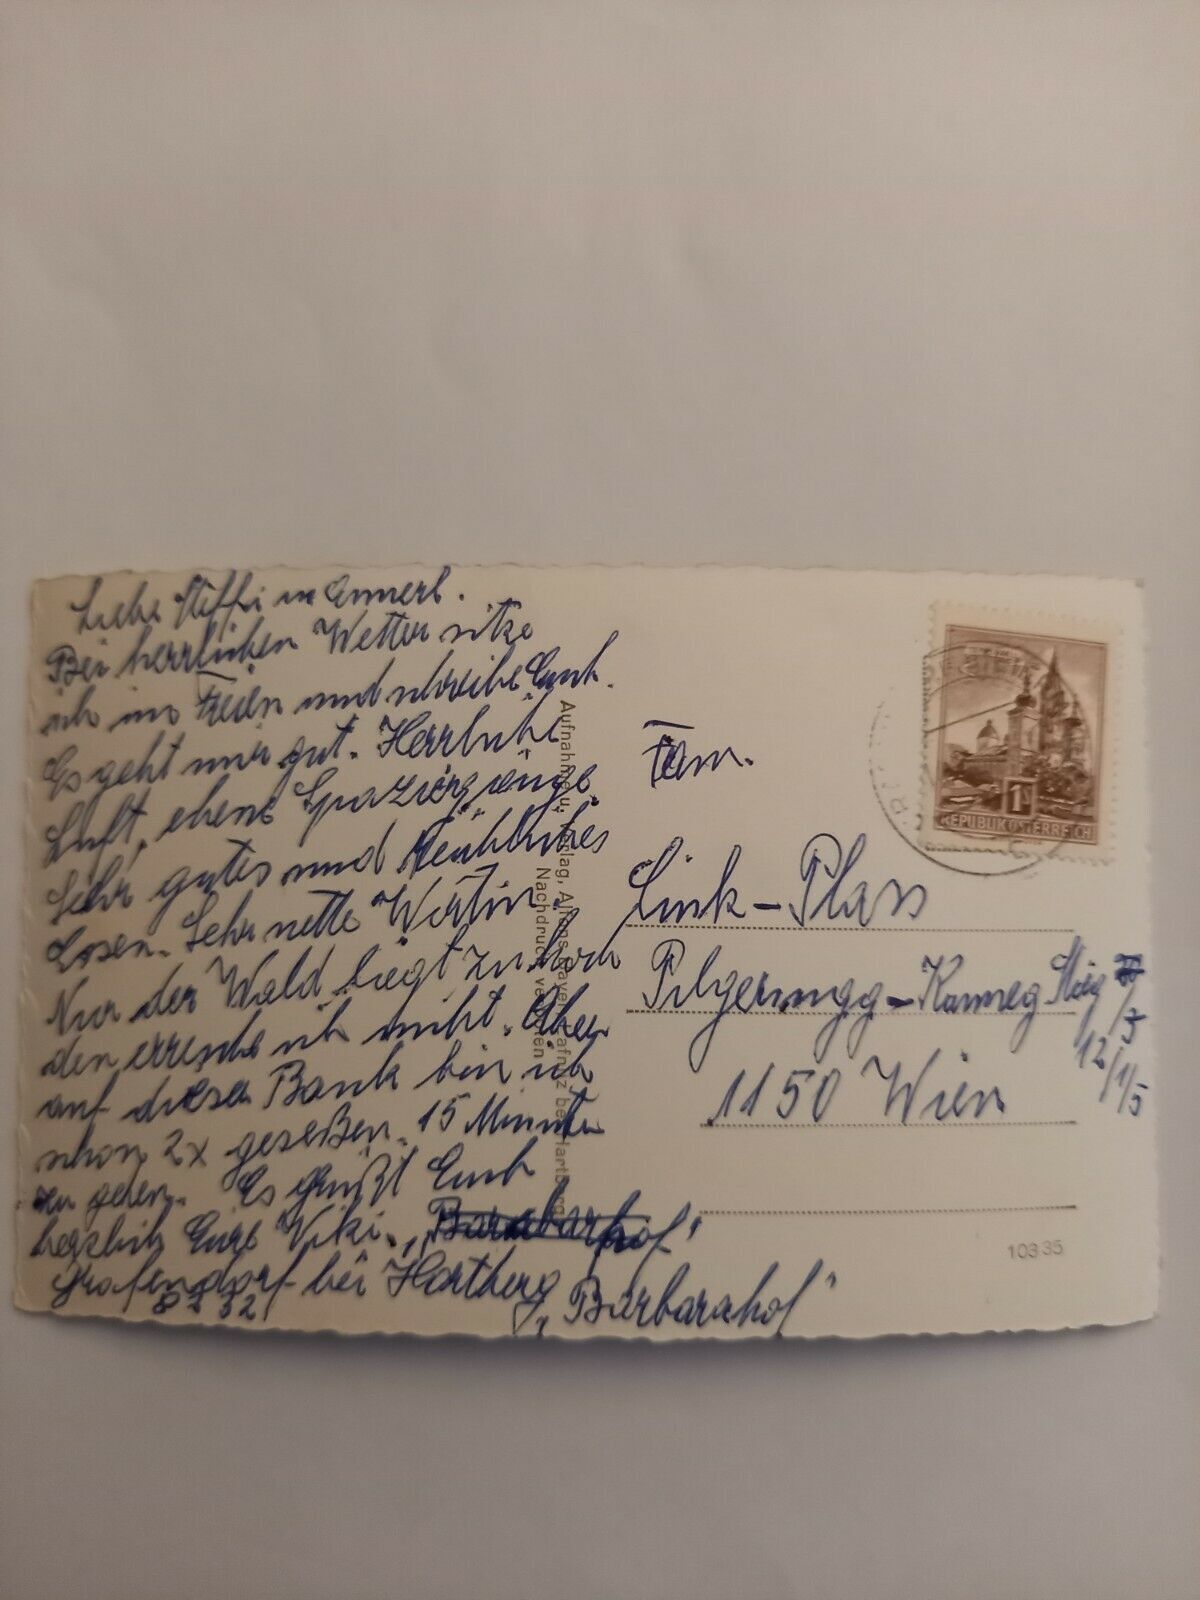 Liebe Steffi u Annerl.
Bei herrlichen Wetter sitze
ich im Freien und schreibe Euch.
Es geht mir gut. Herrliche
Luft, ebene Spaziergänge
Sehr gutes und reichliches
Essen. Sehr nette Wirtin.
Nur der Wald liegt zu hoch
den erreiche ich nicht. Aber
auf dieser Bank bin ich
schon 2x geseßen. 15 Minuten
zu gehen. Es grüßt Euch
herzlich Eure Viki. „Barabarhof"
Grafendorf bei Hartberg
8232 „Barbarahof"
Aufnahme u. Verlag,
Nachdruck verboten
Fam.
Link-Plass
1150 Wien
12/1/5
REPUBLIK ÖSTERREICH
10335